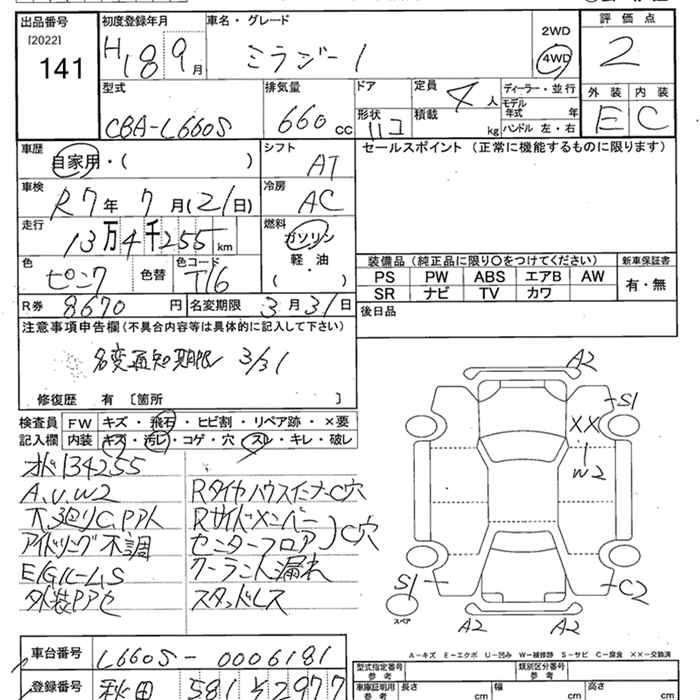 出品番号 初度登録年月 車名・グレード 評価点
[2022] 141 H18 9月 ミラジーノ 2WD 4WD 2
型式 排気量 ドア 定員 4人 ディーラー・並行 外装 内装
モデル年式 年
CBA-L660S 660cc 形状 積載 kg ハンドル 左・右 E C
車歴 自家用・( ) シフト AT セールスポイント (正常に機能するものに限ります)
車検 R7年7月(21日) 冷房 AC
走行 13万4千255km 燃料 ガソリン
軽油
・
( )
色 ピンク 色替 色コード T16
装備品 (純正品に限り○をつけてください) 新車保証書
PS PW ABS エアB AW 有・無
SR ナビ TV カワ
R券 8670円 名変期限 3月31日 後日品
注意事項申告欄(不具合内容等は具体的に記入して下さい)
名変通知期限 3/31
修復歴 有 [箇所 ]
検査員 FW キズ・飛石・ヒビ割・リペア跡・×要
記入欄 内装 キズ・汚レ・コゲ・穴・スレ・キレ・破レ
オド134255
A.U.W2 RタイヤハウスインナーC穴
下廻りC.Pアト Rサイドメンバー
アイドリング不調 センターフロア)C穴
E/Gルーム S クーラント漏れ
外装Pアセ スタッドレス
A2
S1
XX
W2
S1
C2
スペア
A2 A2
A-キズ E-エクボ U-凹み W-補修跡 S-サビ C-腐食 ××-交換済
車台番号 L660S-0006181
型式指定番号 参考 類別区分番号 参考
登録番号 秋田 581 そ2977
車庫証明用 参考 長さ cm 幅 cm 高さ cm